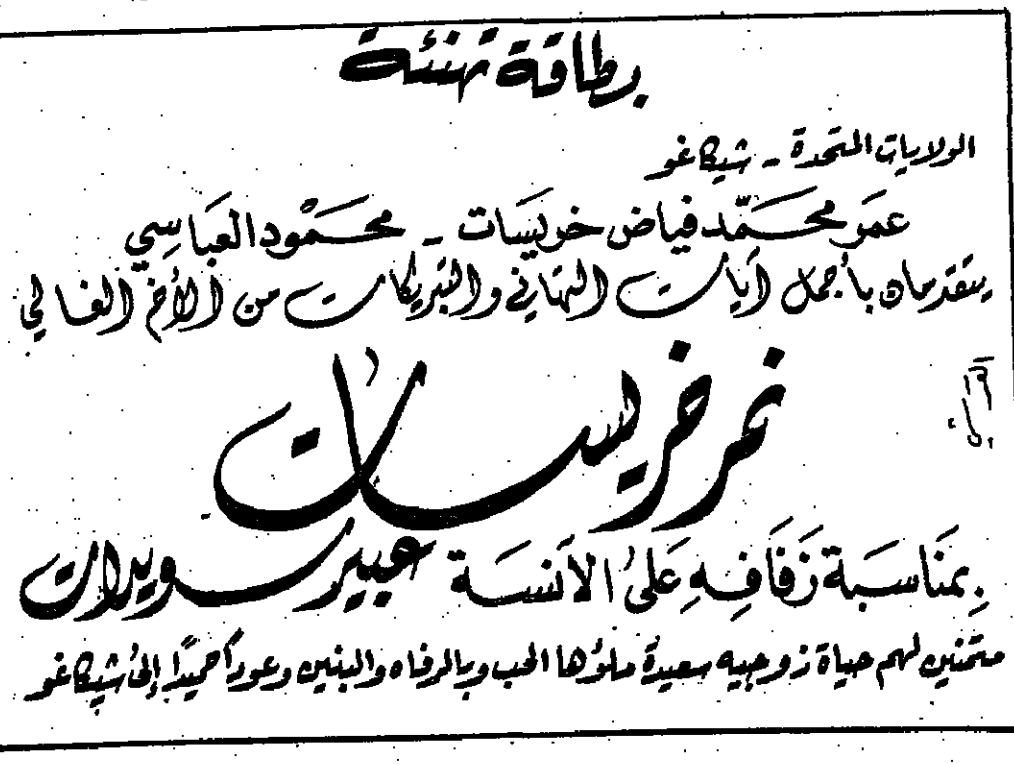 بطاقة تهنئة
الولايات المتحدة - شيكاغو
عمر محمّد فياض خريسات - محمود العباسي
يتقدمان بأجمل آيات التهاني والتبريكات من الأخ الغالي
نمر خريسات
بمناسبة زفافه على الآنسة عبير سويدات
متمنين لهم حياة زوجيه سعيدة ملؤها الحب وبالرفاه والبنين وعوداً حميداً إلى شيكاغو